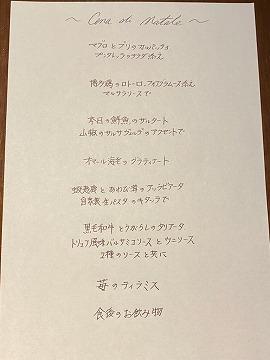 ～ Cena di Natale ～
マグロとブリのカルパッチョ
プンタレッラのサラダ添え
博多鶏のロトーロ、フォアグラムース添え
マルサラソースで
本日の鮮魚のサルタート
山椒のサルサヴェルデのアクセントで
オマール海老のグラティナート
蝦夷鹿とあわび茸のアラビアータ
自家製生パスタのキタッラで
黒毛和牛とうがらしのタリアータ
トリュフ風味バルサミコソースとウニソース
2種のソースと共に
苺のティラミス
食後のお飲み物